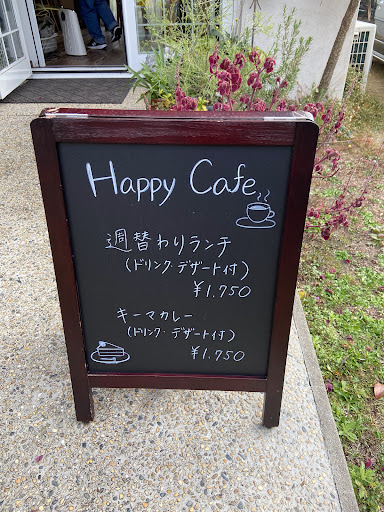 Happy Cafe
週替わりランチ
(ドリンク・デザート付)
¥1.750
キーマカレー
(ドリンク・デザート付)
¥1.750